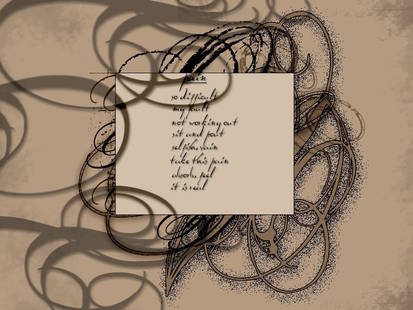 pain
so difficult
my fault
not working out
sit and pout
selfish, vain
take this pain
it is real